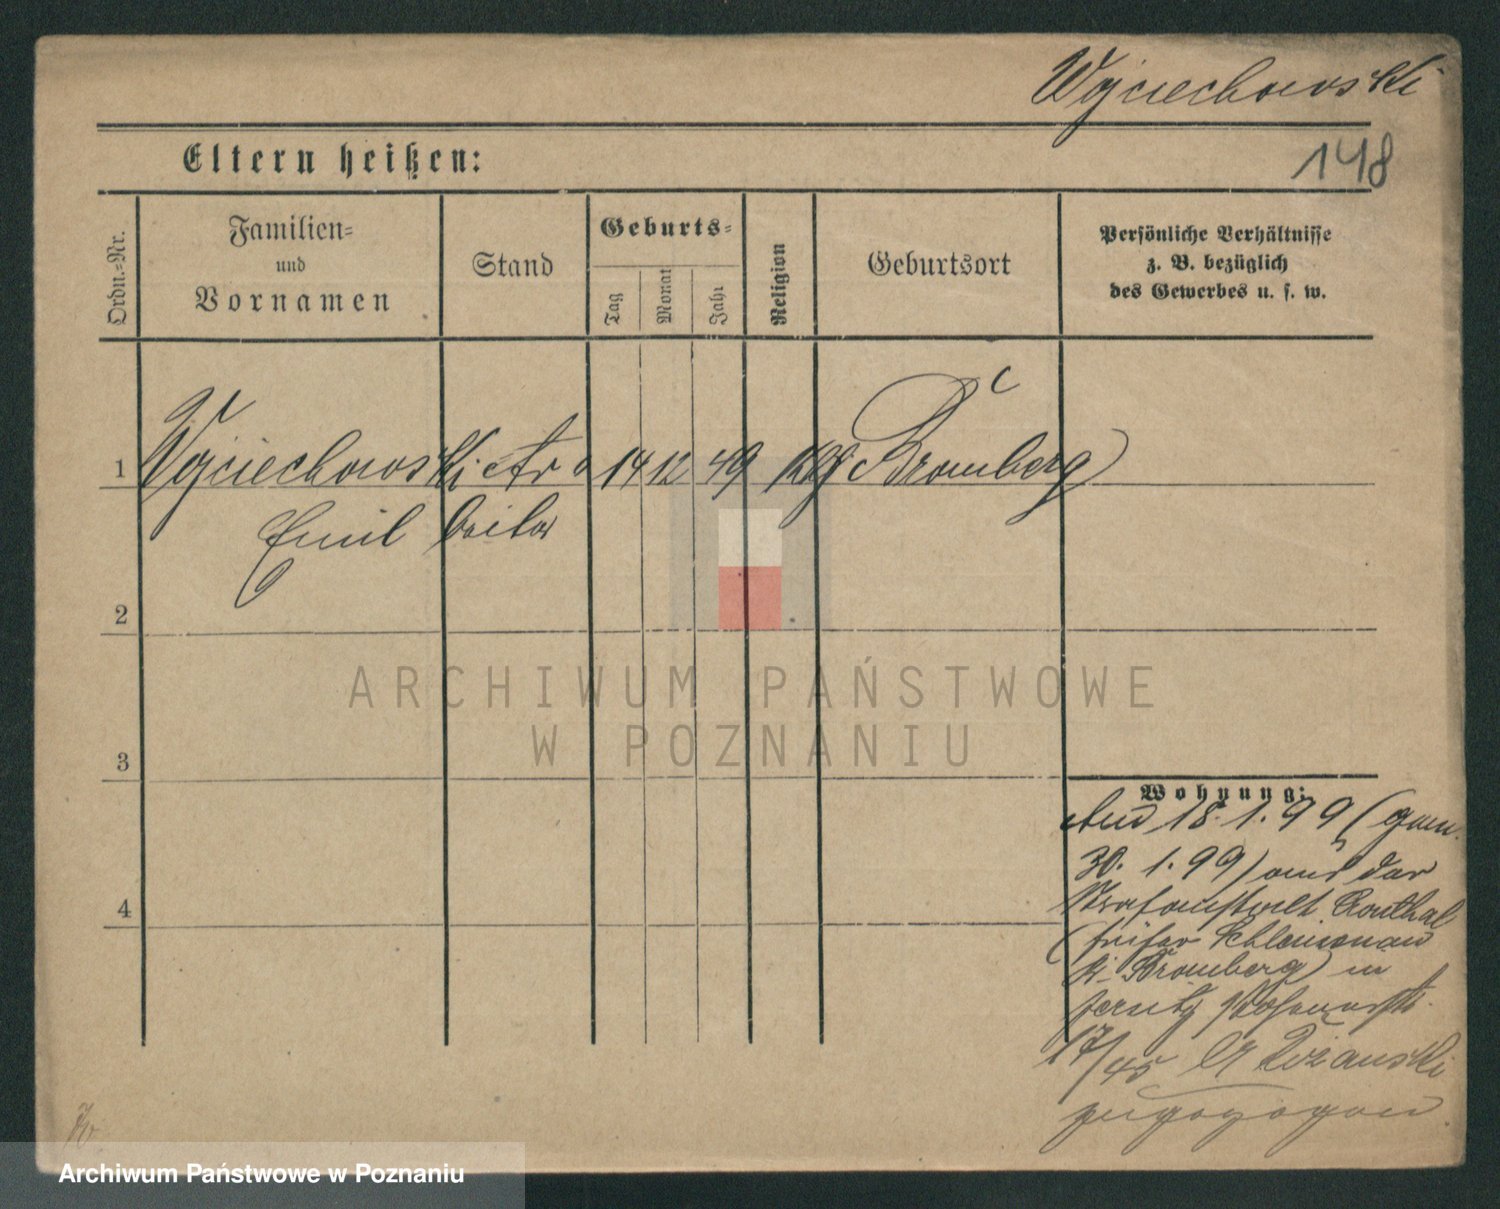 Wojciechowski
148
Eltern heißen:
Ordn.=Nr.
Familien=
und
Vornamen
Stand
Geburts=
Tag
Monat
Jahr
Religion
Geburtsort
Persönliche Verhältnisse
z. B. bezüglich
des Gewerbes u. s. w.
1 Wojciechowski Ar= 14 12 49 Bromberg
Emil beiter
2
ARCHIWUM PAŃSTWOWE
W POZNANIU
3
Wohnung:
18. 1. 99 (gem.
30. 1. 99) aus der
Strafanstalt Ronthal
(früher
b. Bromberg) in
Jersitz
17/45
zugezogen
4
Archiwum Państwowe w Poznaniu